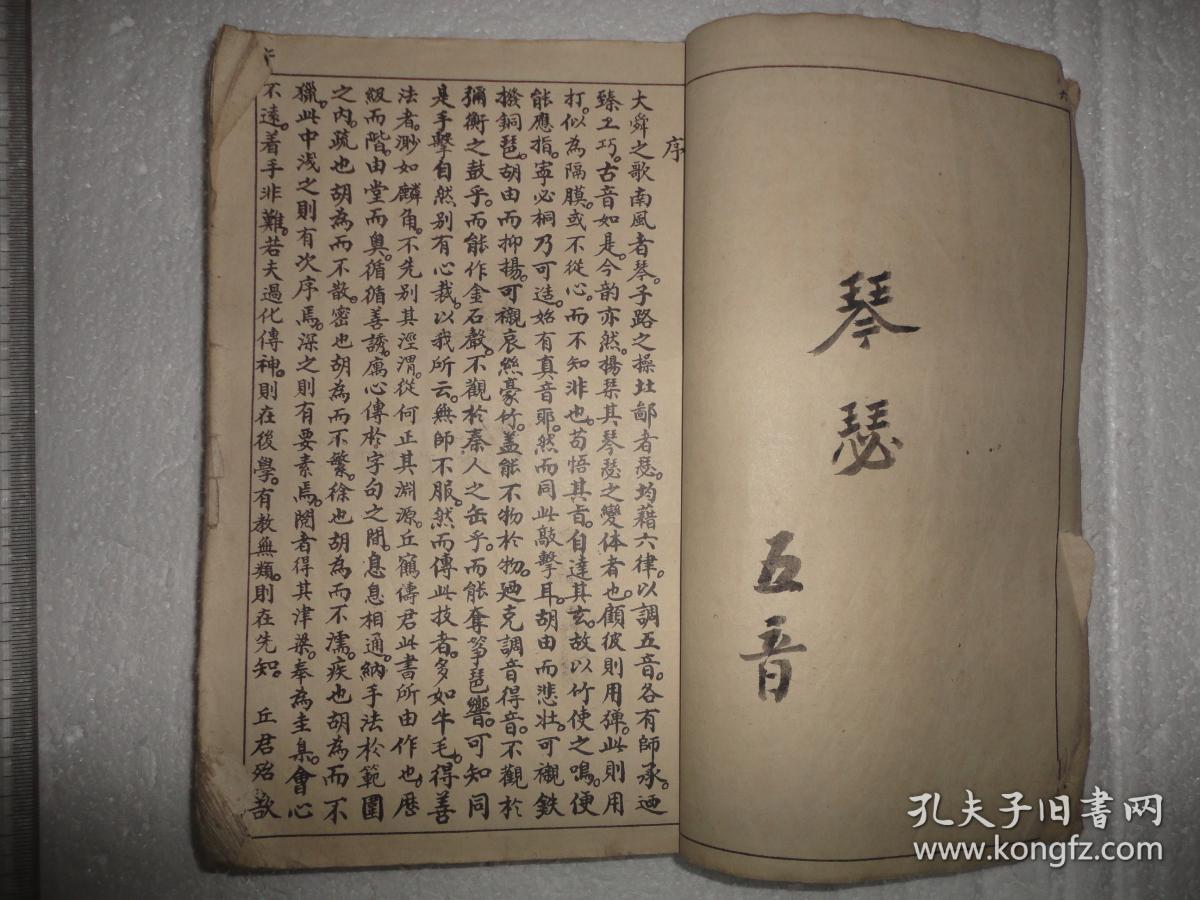 琴瑟
五音
序
大舜之歌南風者琴。子路之操北鄙者瑟。均藉六律。以調五音。各有師承。迺
臻工巧。古音如是。今韵亦然。揚琹其琴瑟之變体者也。顧彼則用彈。此則用
打。似為隔膜。或不從心。而不知非也。苟悟其旨。自達其玄。故以竹使之鳴。便
能應指。寧必桐乃可造。始有真音耶。然而同此敲擊耳。胡由而悲壯。可襯鉄
撥銅琶。胡由而抑揚。可襯哀絲豪竹。蓋能不物於物。廼克調音得音。不觀於
禰衡之鼓乎。而能作金石聲。不觀於秦人之缶乎。而能奪箏琶響。可知同
是手擊自然別有心裁。以我所云。無師不服。然而傳此技者。多如牛毛。得善
法者。渺如麟角。不先別其涇渭。從何正其淵源。丘鶴儔君此書所由作也。歷
級而階。由堂而奥。循循善誘。寓心傳於字句之間。息息相通。納手法於範圍
之內。疏也胡為而不散。密也胡為而不繁。徐也胡為而不濡。疾也胡為而不
獵。此中浅之則有次序焉。深之則有要素焉。閱者得其津梁。奉為圭臬。會心
不遠。着手非難。若夫過化傳神。則在後學。有教無類。則在先知。 丘君殆
孔夫子旧书网
www.kongfz.com